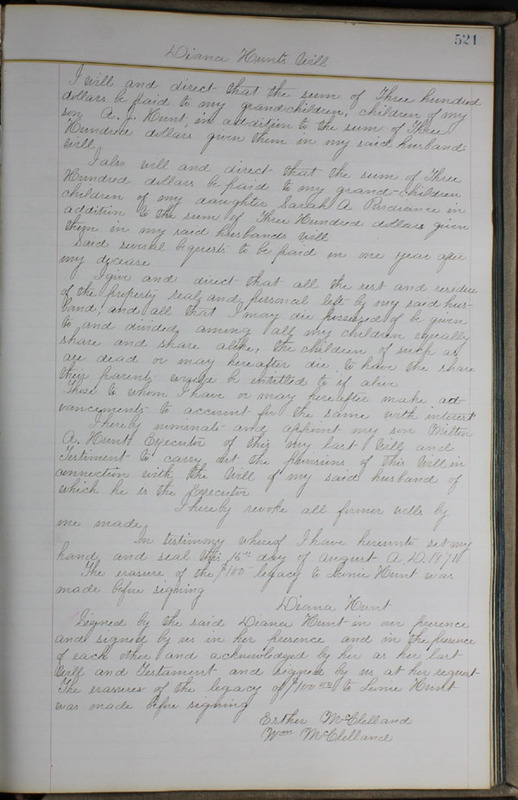 521
Diana Hunts Will
I will and direct that the sum of Three hundred
dollars be paid to my grandchildren, children of my
son A. J. Hunt, in addition to the sum of Three
Hundred dollars given them in my said husbands
Will
I also will and direct that the sum of Three
Hundred dollars be paid to my grand-children
children of my daughter Sarah A in
addition to the sum of Three Hundred dollars given
them in my said husbands Will
Said several bequests to be paid in one year after
my decease
I give and direct that all the rest and residue
of the property real and personal left by my said hus-
band, and all that I may die possessed of be given
to and divided among all my children equally
share and share alike, the children of such as
are dead or may hereafter die to have the share
their parents would be entitled to if alive
Those to whom I have or may hereafter make ad
vancements to account for the same with interest
I hereby nominate and appoint my son Milton
A. Hunt Executor of this my last Will and
Testiment to carry out the provisions of this Will in
connection with the Will of my said husband of
which he is the Executor
I hereby revoke all former wills by
me made
In testimony whereof I have hereunto set my
hand and seal this 15th day of August A.D.
The erasure of the $100 legacy to Hunt was
made before signing
Diana Hunt
Signed by the said Diana Hunt in our presence
and signed by us in her presence and in the presence
of each other and acknowledged by her as her last
Will and Testament and signed by us at her request
The erasures of the legacy of $100 to Hunt
was made before signing
Esther McClelland
Wm McClelland